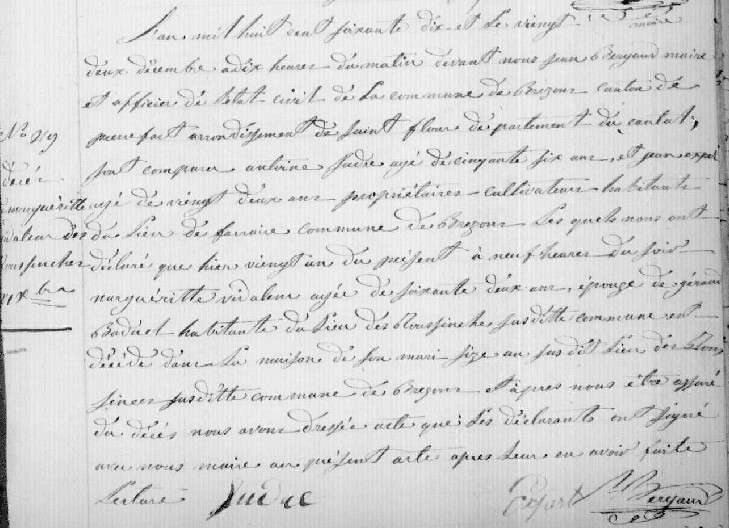 L'an mil huit cent soixante dix et le viengt
deux décembre a dix heures du matin devant nous jean Bergaud maire
et officier de l'etat civil de la commune de Brezons canton de
pierrefort arrondissement de saint flour departement du cantal,
sont comparu antoine sudre agé de cinquante six ans, et jean
agé de viengt deux ans propriétaires cultivateurs habitants
du lieu de commune de Brezons Les quels nous ont
déclaré que hier viengt un du présent à neuf heures du soir
marguéritte vidalenc agée de soixante deux ans, épouse de géraud
habitante du lieu des susditte commune est
décédé dans La maison de son mari size au susdit Lieu des
susditte commune de Brezons et après nous être assuré
du décès nous avons dressée acte que Les déclarants ont signé
avec nous maire au présent acte apres Leur en avoir faite
Lecture Sudre Bergaud
maire
No 29
Décés
marguéritte
vidalenc des